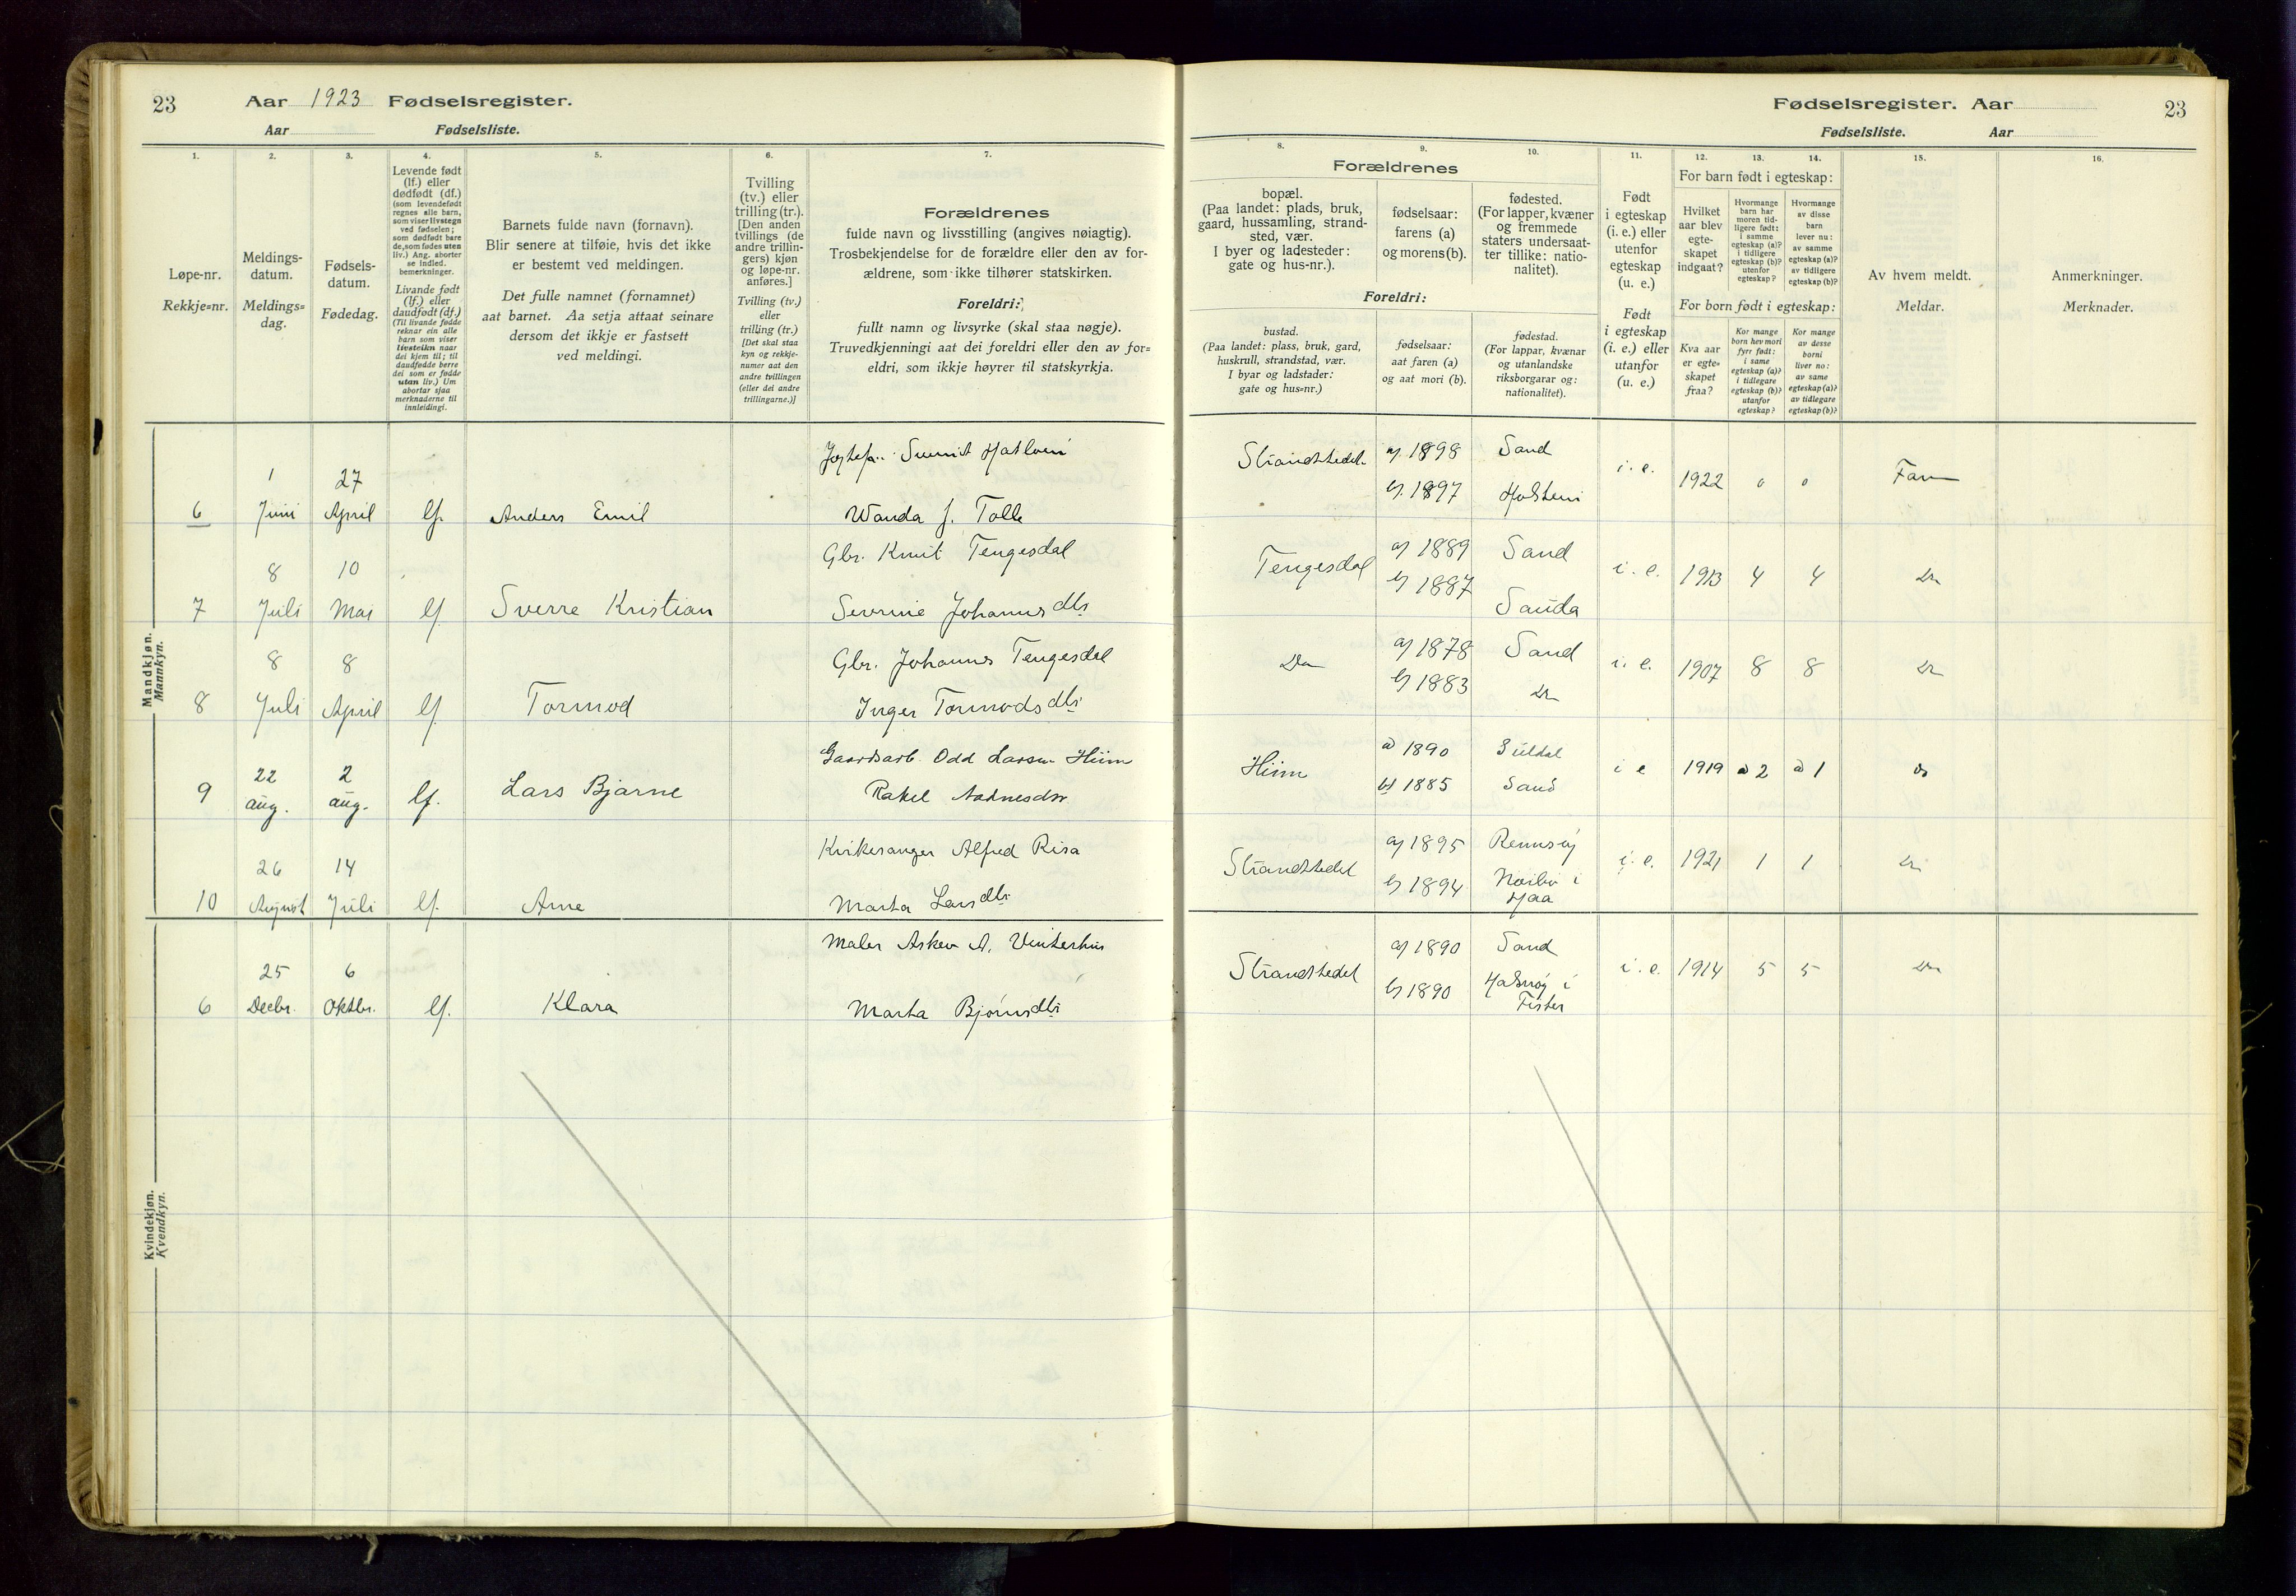 23 Aar 1923 Fødselsregister.
Aar Fødselsliste.
1.
2.
3.
4.
5.
6.
7.
Løpe-nr.
Rekkje=nr.
Meldings-
datum.
Meldings=
dag.
Fødsels-
datum.
Fødedag.
Levende født
(lf.) eller
dødfødt (df.)
(som levendefødt
regnes alle barn,
som viser livstegn
ved fødselen;
som dødfødt bare
de, som fødes uten
liv.) Ang. aborter
se indled.
bemerkninger.
Livande født
(lf.) eller
daudfødt (df.)
(Til livande fødde
reknar ein alle
barn som viser
livsteikn naar
dei kjem til; til
daudfødde berre
dei som er fødde
utan liv.) Um
abortar sjaa
merknaderne til
innleidingi.
Barnets fulde navn (fornavn).
Blir senere at tilføie, hvis det ikke
er bestemt ved meldingen.
Det fulle namnet (fornamnet)
aat barnet. Aa setja attaat seinare
dersom det ikkje er fastsett
ved meldingi.
Tvilling
(tv.) eller
trilling (tr.).
[Den anden
tvillings (de
andre trillin-
gers) kjøn
og løpe-nr.
anføres.]
Tvilling (tv.)
eller
trilling (tr.)
[Det skal staa
kyn og rekkje-
numer aat den
andre tvillingen
(eller dei andre
trillingarne.)]
Forældrenes
fulde navn og livsstilling (angives nøiagtig).
Trosbekjendelse for de forældre eller den av for-
ældrene, som ikke tilhører statskirken.
Foreldri:
fullt namn og livsyrke (skal staa nøgje).
Truvedkjenningi aat dei foreldri eller den av for=
eldri, som ikkje høyrer til statskyrkja.
Mandkjøn.
Mannkyn.
1 27
6 Juni April lf. Anders Emil
Wanda f. Tolle
Gbr. Knut Tengesdal
8 10
7 Juli Mai lf. Sverre Kristian Severine Johannesdtr
Gbr. Johannes Tengesdal
8 8
8 Juli April lf. Tormod Inger Tormodsdtr
Gaardsarb. Odd Larsen Hiim
22 2
9 aug. aug. lf. Lars Bjarne Rakel Aadnesdtr
Alfred Risa
26 14
10 August Juli lf. Arne Marta Larsdtr
Kvindekjøn.
Kvendkyn.
Maler Askev A. Vinterhus
25 6
6 Decbr. Oktbr. lf. Klara Marta Bjørnsdtr
Fødselsregister. Aar 23
Fødselsliste. Aar
8.
9.
10.
11.
12.
13.
14.
15.
16.
Forældrenes
bopæl.
(Paa landet: plads, bruk,
gaard, hussamling, strand-
sted, vær.
I byer og ladesteder:
gate og hus-nr.).
fødselsaar:
farens (a)
og morens (b).
fødested.
(For lapper, kvæner
og fremmede
staters undersaat-
ter tillike: natio-
nalitet).
Foreldri:
bustad.
(Paa landet: plass, bruk, gard,
huskrull, strandstad, vær.
I byar og ladstader:
gate og hus=nr.)
fødselsaar:
aat faren (a)
og aat mori (b).
fødestad.
(For lappar, kvænar
og utanlandske
riksborgarar og:
nationalitet).
Født
i egteskap
(i. e.) eller
utenfor
egteskap
(u. e.)
Født
i egteskap
(i. e.) eller
utanfor
(u. e.)
For barn født i egteskap:
Hvilket
aar blev
egte-
skapet
indgaat?
Hvormange
barn har
moren tid-
ligere født:
i samme
egteskap (a)?
i tidligere
egteskap (b)?
utenfor
egteskap?
Hvormange
av disse
barn
lever nu:
av samme
egteskap (a)?
av tidligere
egteskap (b)?
For born født i egteskap:
Kva aar
er egte-
skapet
fraa?
Kor mange
born hev mori
fyrr født:
i same
egteskap (a)?
i tidlegare
egteskap (b)?
utanfor
egteskap?
Kor mange
av desse
borni
liver no:
av same
egteskap (a)?
av tidlegare
egteskap (b)?
Av hvem meldt.
Meldar.
Anmerkninger.
Merknader.
Strandstedet a) 1898 Sand i. e. 1922 0 0 Far
b) 1897 Holstein
Tengesdal a) 1889 Sand i. e. 1913 4 4 Do
b) 1887 Sauda
Do a) 1878 Sand i. e. 1907 8 8 Do
b) 1883 Do
Hiim a) 1890 Suldal i e 1919 a 2 a 1 do
b) 1885 Sand
Strandstedet a) 1895 Rennesøy i. e. 1921 1 1 Do
b) 1894 Nærbø i
Haa
Strandstedet a) 1890 Sand i. e. 1914 5 5 Do
b) 1890 Halsnøy i
Fister